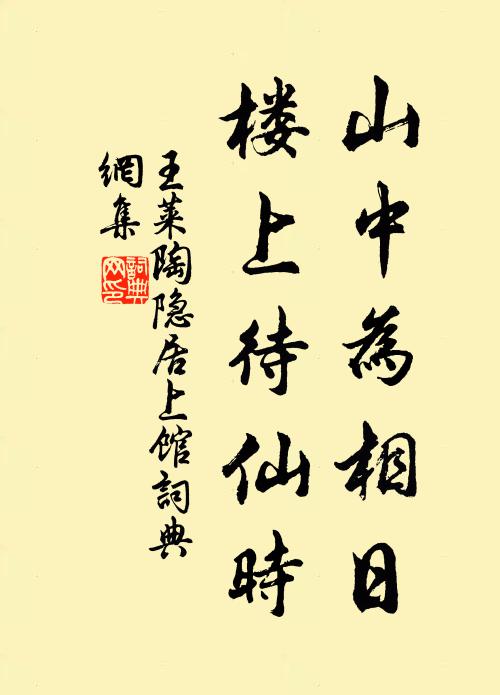 山中為相日
楼上待仙時
王莱陶隐居上馆詞典
網集
詞典
网印